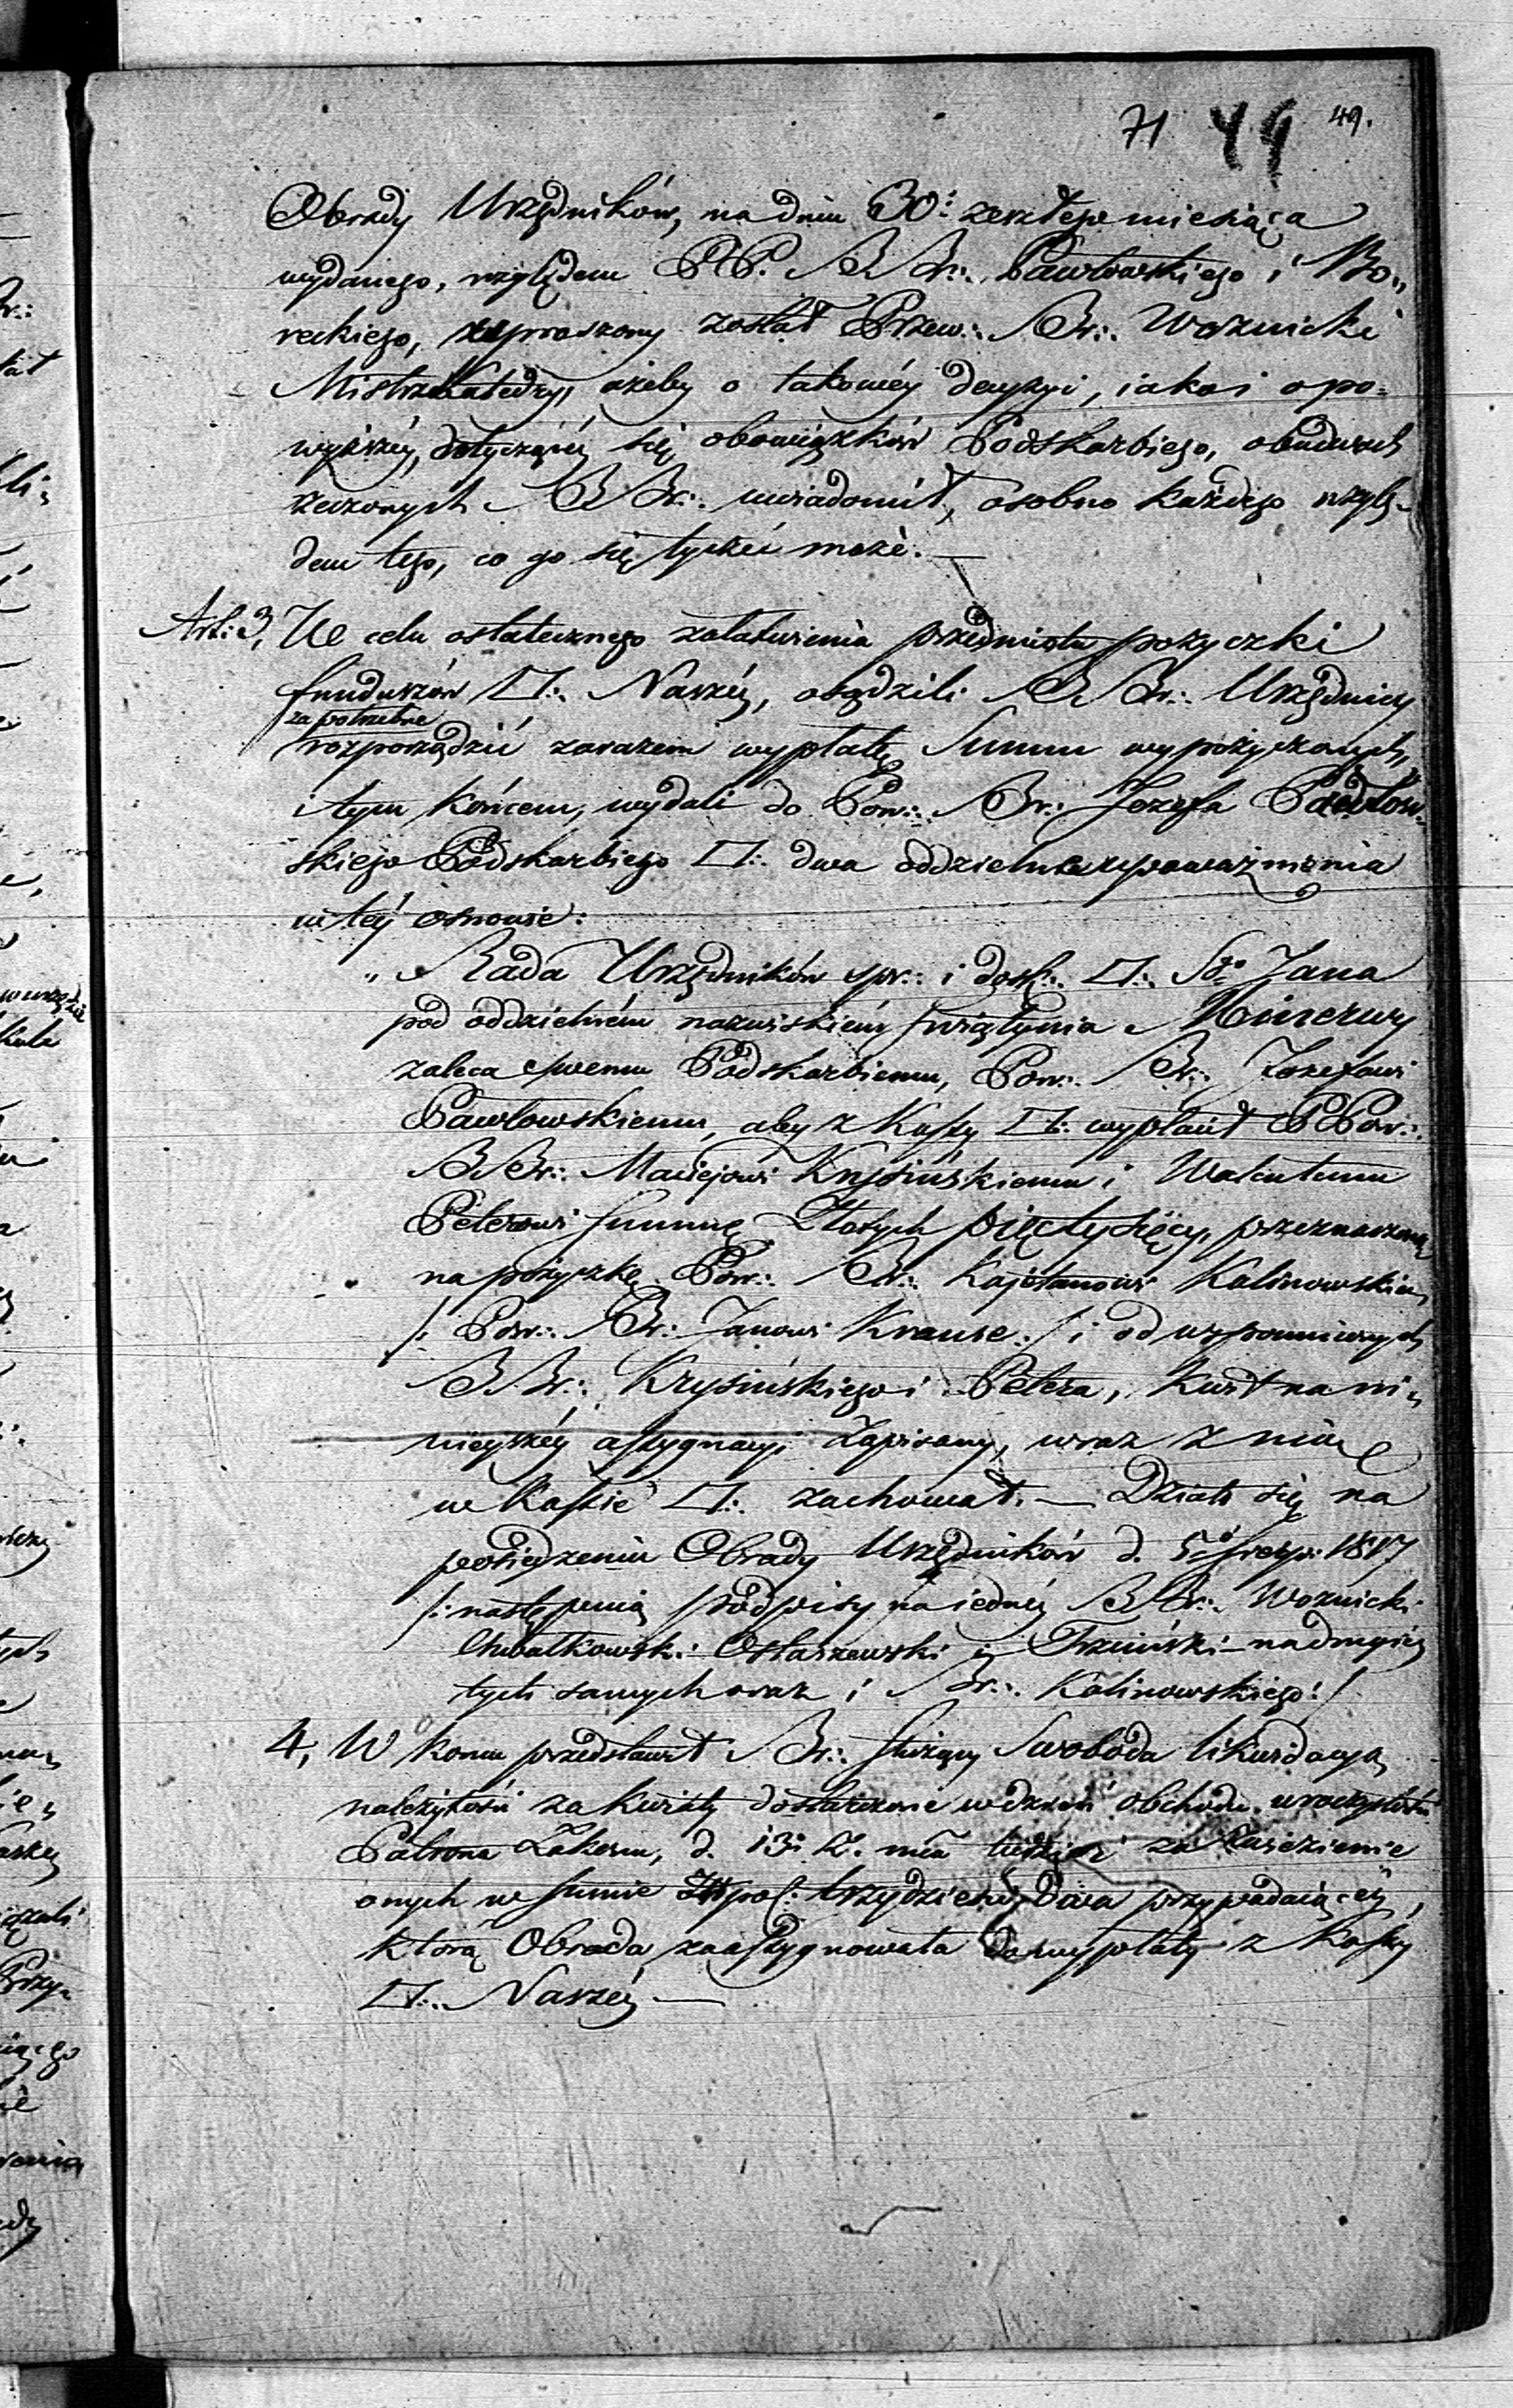 71 49 49.
Obrady Urzędników, na dniu 30: zeszłego miesiąca
wydanego, względem PP. BBr:. Pawłowskiego i Bo„
reckiego, zaproszony został Przew:. Br:. Woznicki
Mistrz Katedry, ażeby o takowéy decyzyi, iako i o po=
wyższéy, dotyczącéy się obowiązków Podskarbiego, obudwuch
rzeczonych BBr:. uwiadomił, osobno każdego wzglę-
dem tego, co go się tyczéc może. —
Art: 3, W celu ostatecznego załatwienia przedmiotu pożyczki
funduszów □:. Naszéy, osądzili BBr:. Urzędnicy
za potrzebne
rozporządzić zarazem wypłatę Summ wypożyczonych,
i tym końcem, wydali do Pow:. Br:. Jozefa Pawłow„
skiego Podskarbiego □:. dwa oddzielne upoważnienia
w téy osnowie:
„ Rada Urzędników spr:. i dosk:. □:. Sgo Jana
pod oddzielném nazwiskiem Swiątynia Minerwy
zaleca swemu Podskarbiemu, Pow:. Br:. Jozefowi
Pawłowskiemu, aby z Kassy □:. wypłacił PPow:.
BBr:. Maciejowi Krysińskiemu i Walentemu
Peterowi summę Złotych pięć tysięcy, przeznaczoną
na pożyczkę Pow:. Br:. Kajetanowi Kalinowskiem„
/: Pow:. Br:. Janowi Krause :/ i od wspomnionych
BBr:. Krysińskiego i Petera, Kwit na ni„
nieyszéy assygnacyi zapisany, wraz z nią
w Kassie □:. zachował. — Działo się na
posiedzeniu Obrady Urzędników d. 5o 1817
/: następuią podpisy na iednéy BBr:. Woznicki
Chwałkowski Ostaszewski i Trzciński — na drugiéy
tych samych oraz i Br:. Kalinowskiego :/
4, W końcu przedstawił Br:. służący Swoboda likwidacyą
należytości za kwiaty dostarczone w dzień obchodu uroczystości
Patrona Zakonu, d. 13: z. mca tudzież za
onych w summie Złł pol: trzydzieści dwa przypadaiącéy,
którą Obrada zaassygnowała do wypłaty z Kassy
□:. Naszéy —